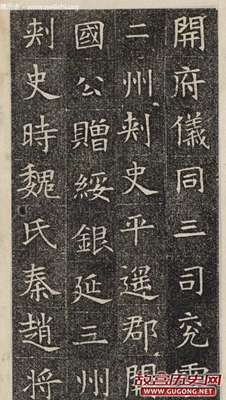 開府儀同三司兖
二州刾史平遥郡開
國公贈綏銀延三州
刾史時魏氏秦趙将
故宫历史网
WWW.GUGONG.NET